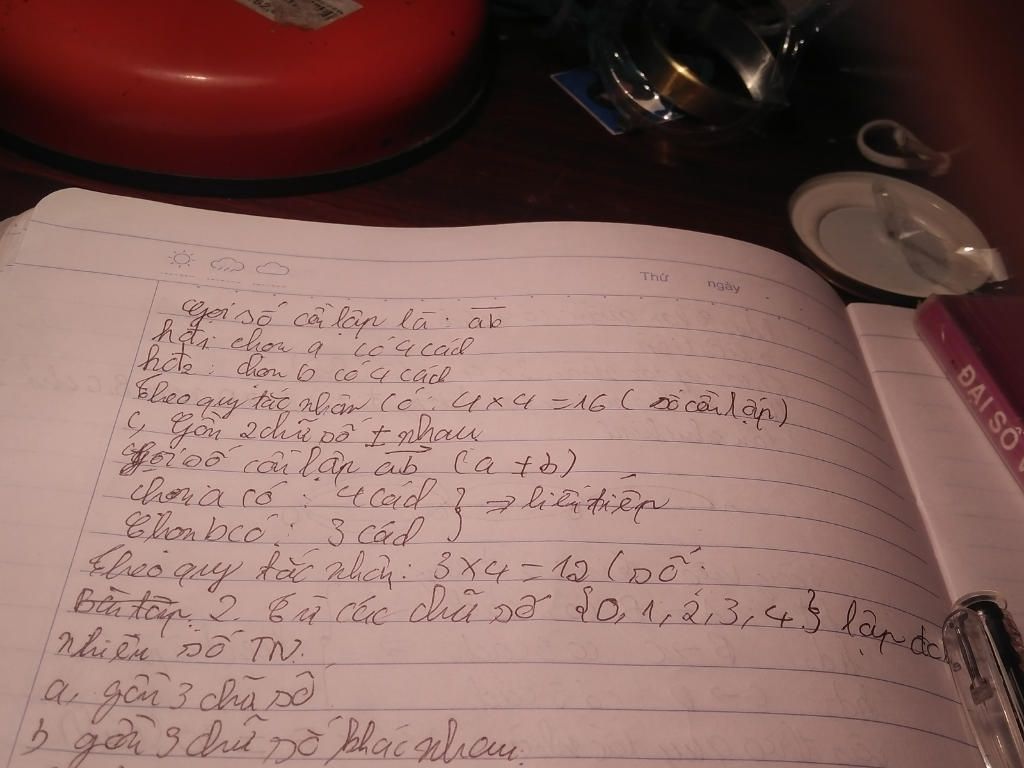 Thứ ngày
Gọi số cần lập là: ab
hđ1: chọn a có 4 cách
hđ2: chọn b có 4 cách
theo quy tắc nhân có: 4 x 4 = 16 ( số cần lập)
c, gồm 2 chữ số ≠ nhau
gọi số cần lập ab (a ≠ b)
chọn a có : 4 cách } => liên tiếp
chọn b có : 3 cách
theo quy tắc nhân: 3 x 4 = 12 ( số
Bài tập 2. Từ các chữ số {0, 1, 2, 3, 4} lập đc
nhiêu số TN.
a, gồm 3 chữ số
b gồm 3 chữ số khác nhau.
ĐẠI SỐ V